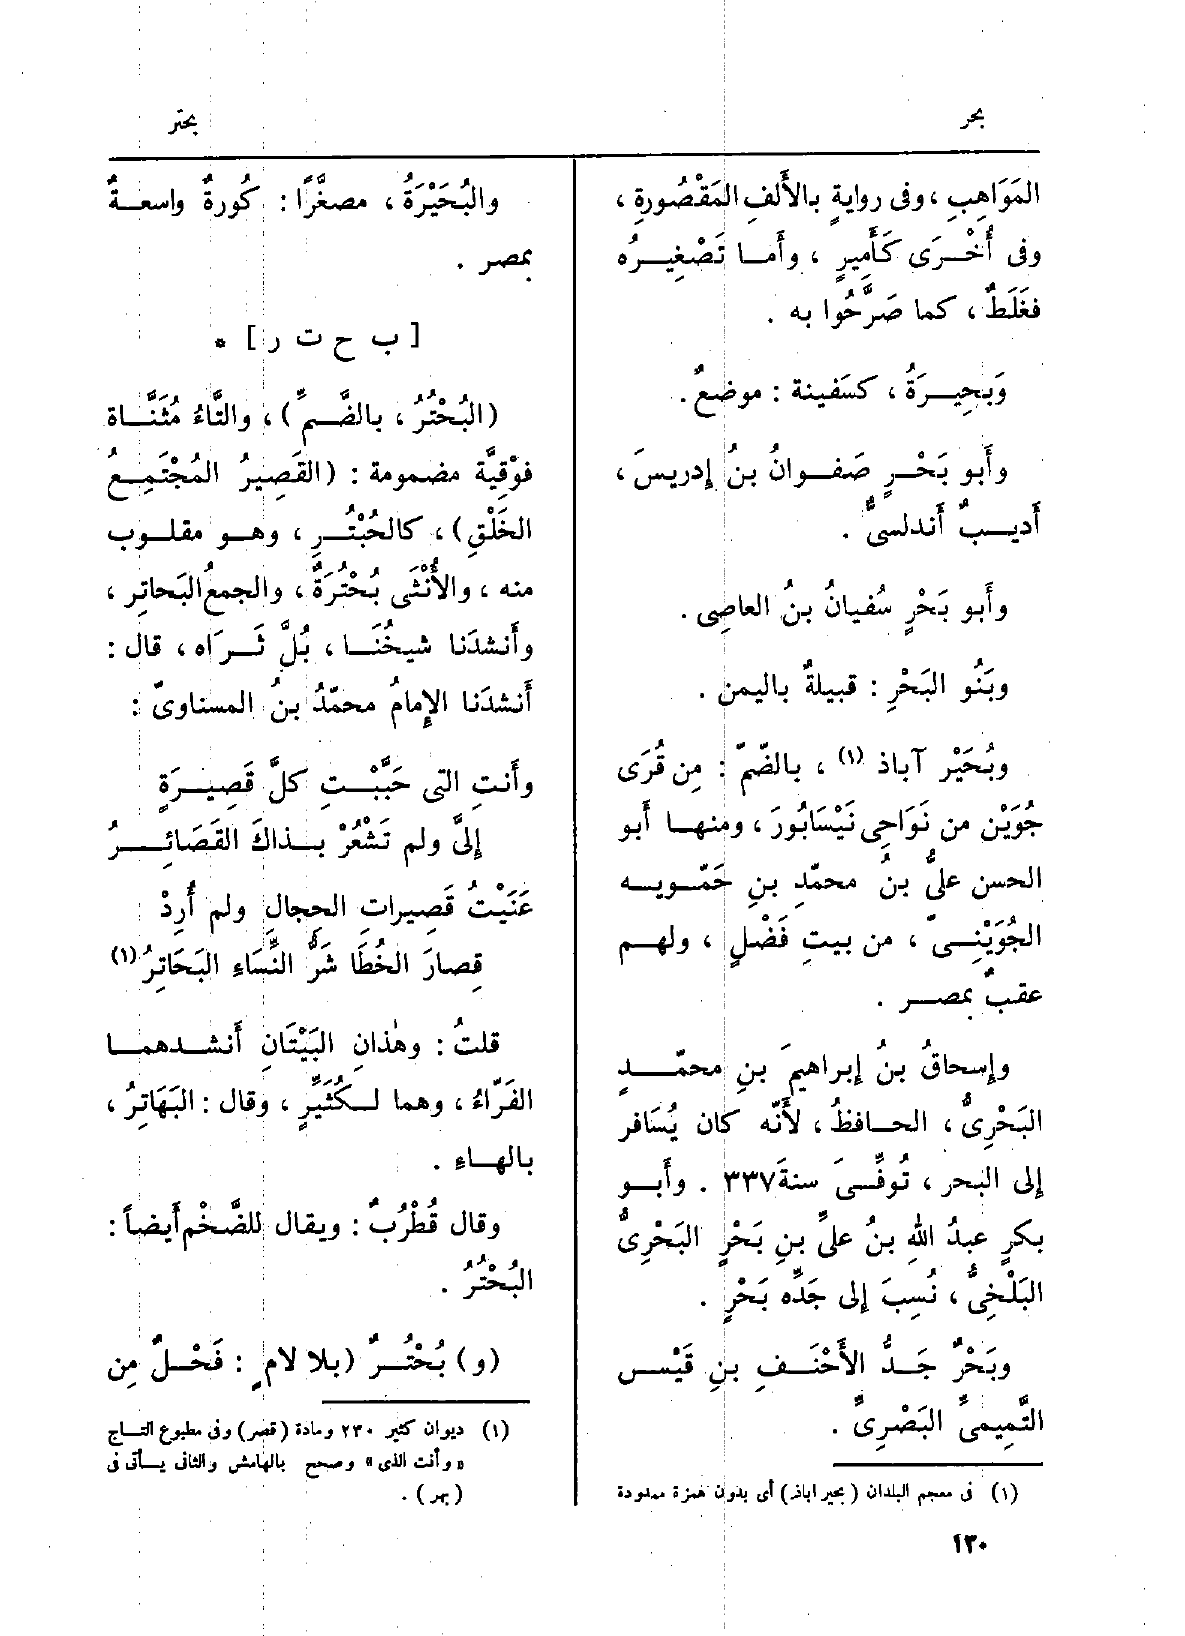 بحر
بحتر
المَوَاهِبِ ، وفى روايةٍ بالأَلفِ المَقْصُورةِ ،
وفى أُخْرَى كَأَمِيرٍ ، وأَما تَصْغِيرُه
فغَلَطٌ ، كما صَرَّحُوا به .
وَبَحِيرَةُ ، كسَفينة : موضعٌ .
وأَبو بَحْرٍ صَفوانُ بنُ إدريسَ ،
أَديبٌ أَندلسىٌّ .
وأَبو بَحْرٍ سُفيانُ بنُ العاصِى .
وبَنُو البَحْرِ : قبيلةٌ باليمن .
وبُحَيْر آباذ (١) ، بالضّمّ : مِن قُرَى
جُوَيْن من نَوَاحِى نَيْسَابُورَ ، ومنها أَبو
الحسن علىُّ بنُ محمّدِ بنِ حَمّويه
الجُوَيْنِىّ ، من بيتِ فَضْلٍ ، ولهم
عقبٌ بمصر .
وإسحاقُ بنُ إبراهيمَ بنِ محمّدٍ
البَحْرِىُّ ، الحافظُ ، لأَنّه كان يُسَافر
إلى البحر ، تُوفِّىَ سنةَ ٣٣٧ . وأَبو
بكرٍ عبدُ اللهِ بنُ علىِّ بنِ بَحْرٍ البَحْرِىُّ
البَلْخِىُّ ، نُسِبَ إلى جَدِّه بَحْرٍ .
وبَحْرٌ جَدُّ الأَحْنَفِ بنِ قَيْس
التَّمِيمىِّ البَصْرِىِّ .
(١) فى معجم البلدان (بحير اباذ) أى بدون همزة ممدودة
والبُحَيْرَةُ ، مصغَّرًا : كُورةٌ واسعةٌ
بمصر .
[ ب ح ت ر ] *
(البُحْتُرُ ، بالضَّمِّ) ، والتَّاءُ مُثَنَّاة
فوْقِيَّة مضمومة : (القَصِيرُ المُجْتَمِعُ
الخَلْقِ) ، كالحُبْتُرِ ، وهو مقلوب
منه ، والأُنْثَى بُحْتُرَةٌ ، والجمع البَحاتِر ،
وأَنشدَنا شيخُنَا ، بُلَّ ثَرَاه ، قال :
أَنشدَنا الإِمامُ محمّدُ بنُ المسناوىّ :
وأَنتِ التى حَبَّبْتِ كلَّ قَصِيرَةٍ
إلىَّ ولم تَشْعُرْ بذاكَ القَصَائِرُ
عَنَيْتُ قَصِيراتِ الحِجالِ ولم أُرِدْ
قِصارَ الخُطَا شَرُّ النِّسَاءِ البَحَاتِرُ (١)
قلتُ : وهٰذانِ البَيْتَانِ أَنشدهما
الفَرّاءُ ، وهما لكُثَيِّرٍ ، وقال : البَهَاتِرُ ،
بالهاءِ .
وقال قُطْرُبٌ : ويقال للضَّخْم أَيضاً :
البُحْتُرُ .
(و) بُحْتُرٌ (بلا لامٍ : فَحْلٌ مِن
(١) ديوان كثير ٢٣٠ ومادة (قصر) وفى مطبوع التاج
« وأنت الذى » وصحح بالهامش والثانى يأتى فى
(بهر) .
١٣٠